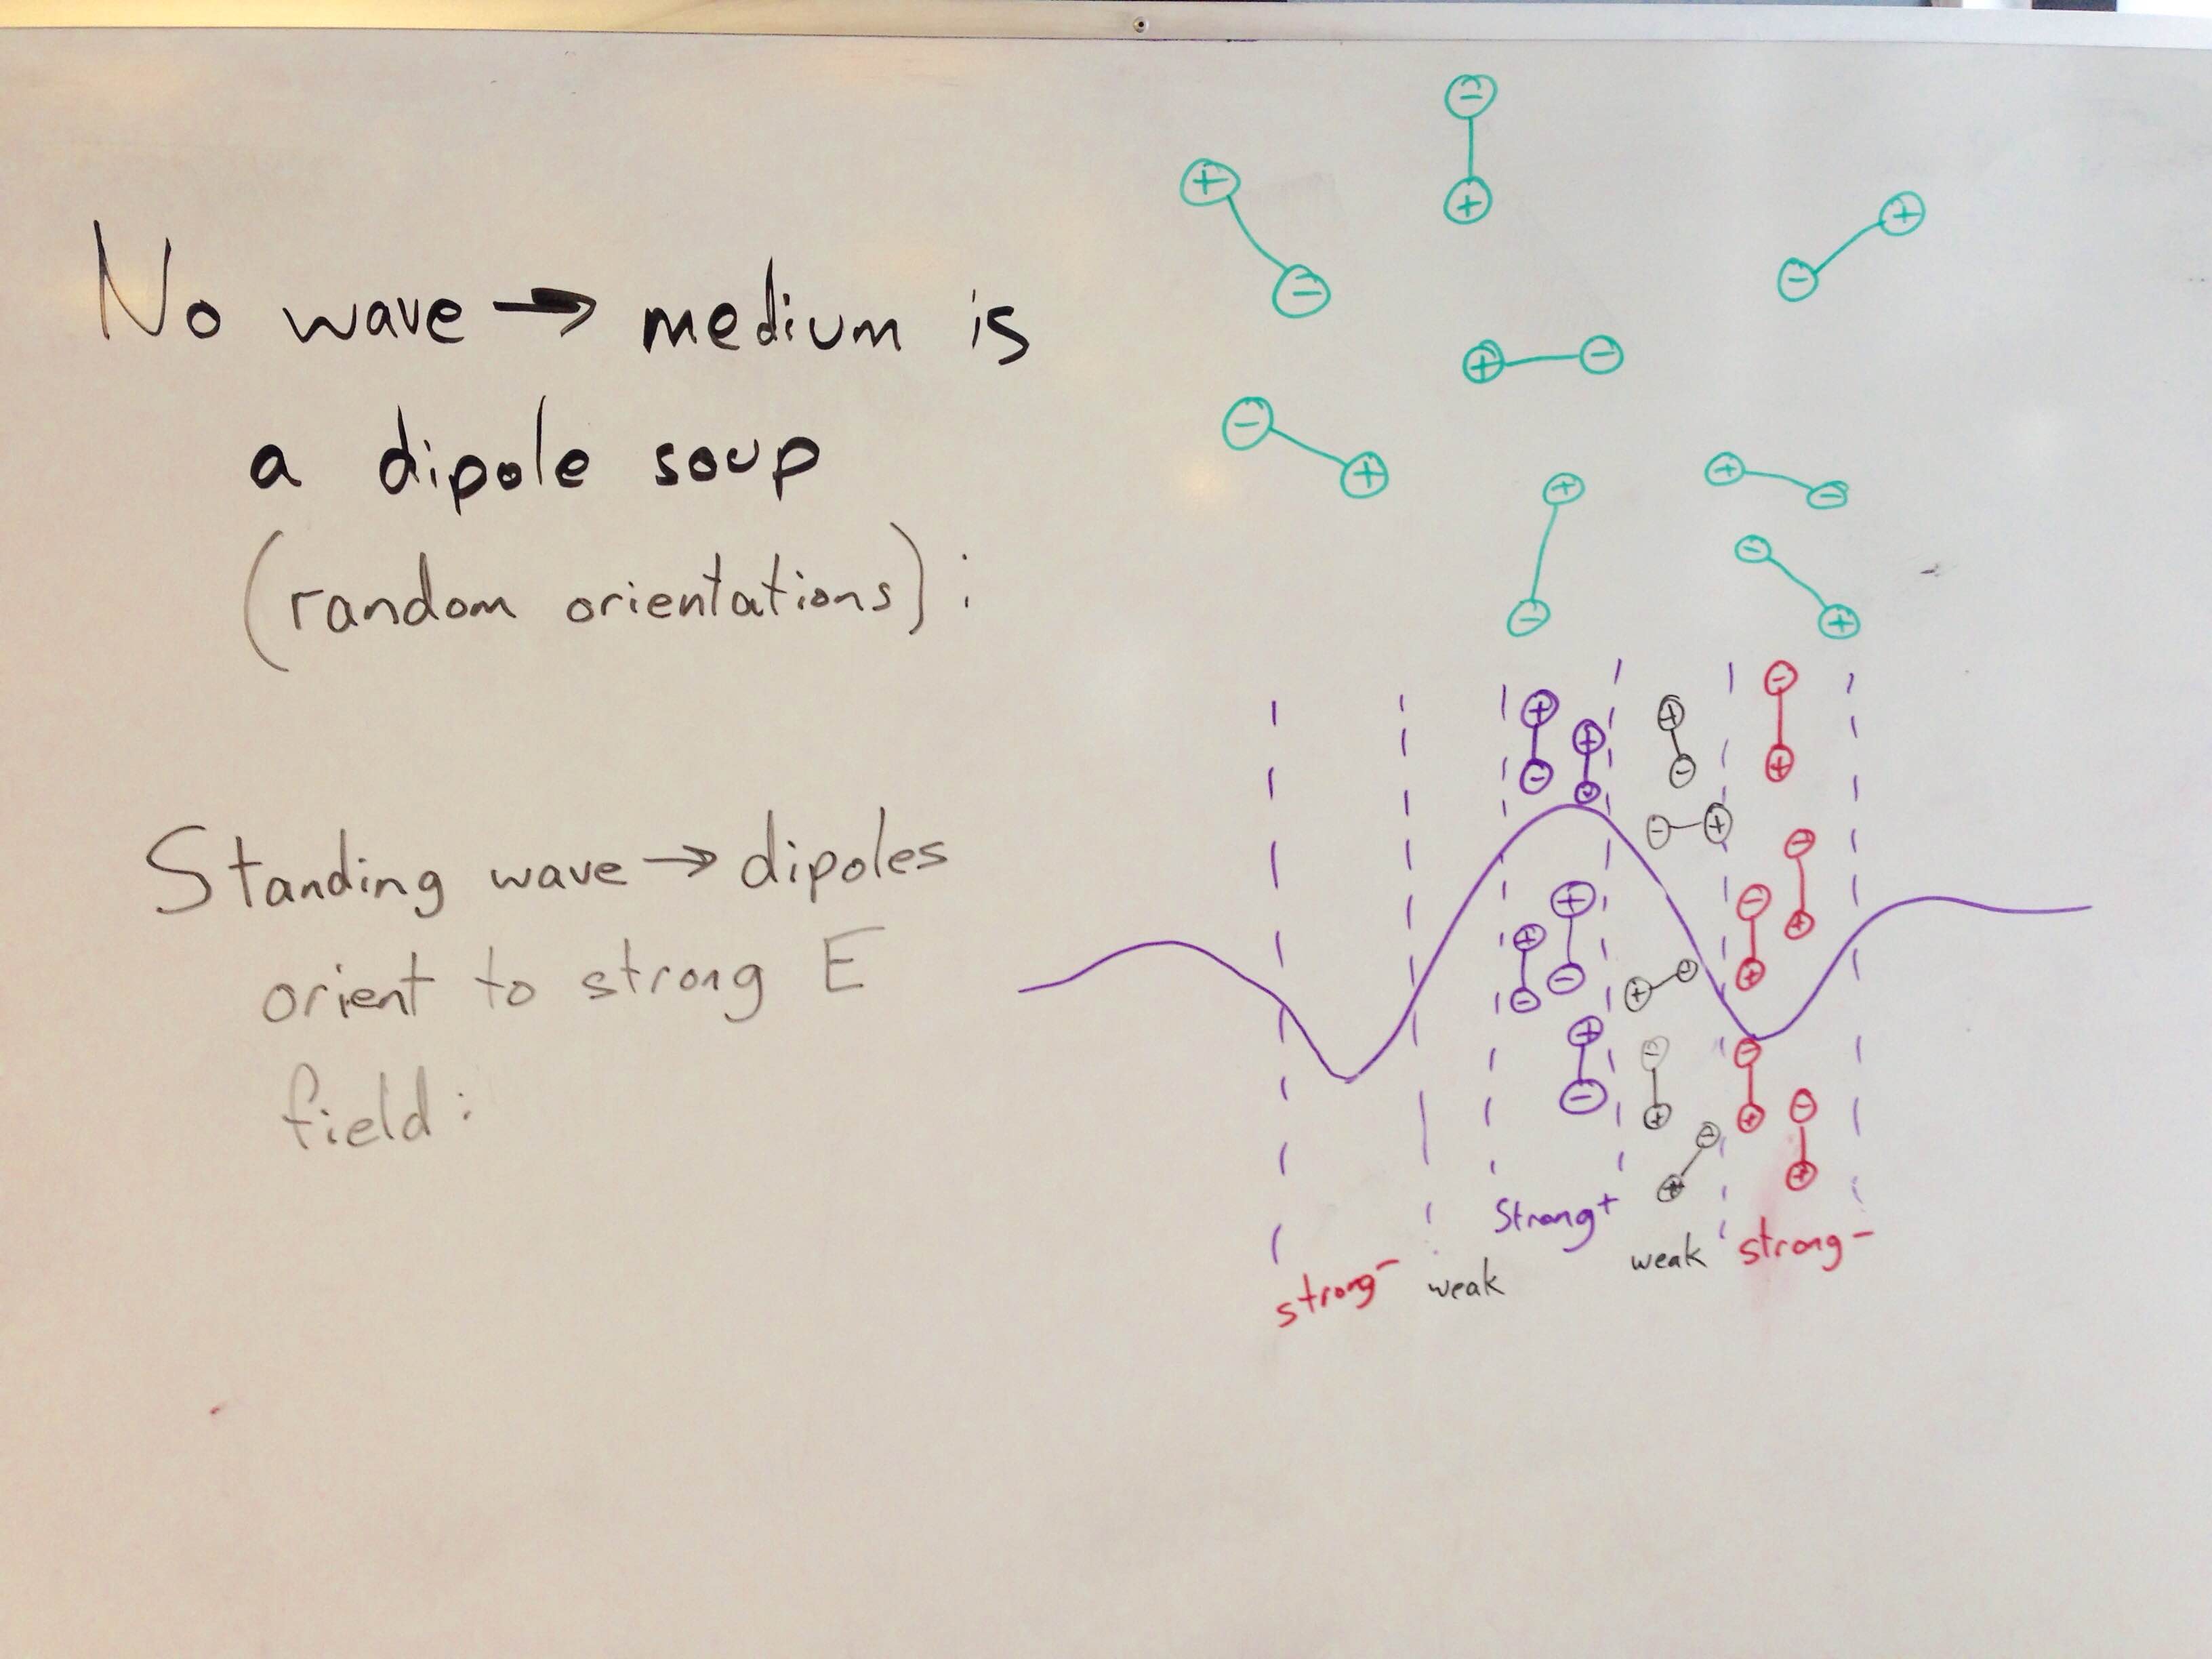 No wave → medium is
a dipole soup
(random orientations):
Standing wave → dipoles
orient to strong E
field:
strong⁻ weak Strong⁺ weak strong⁻